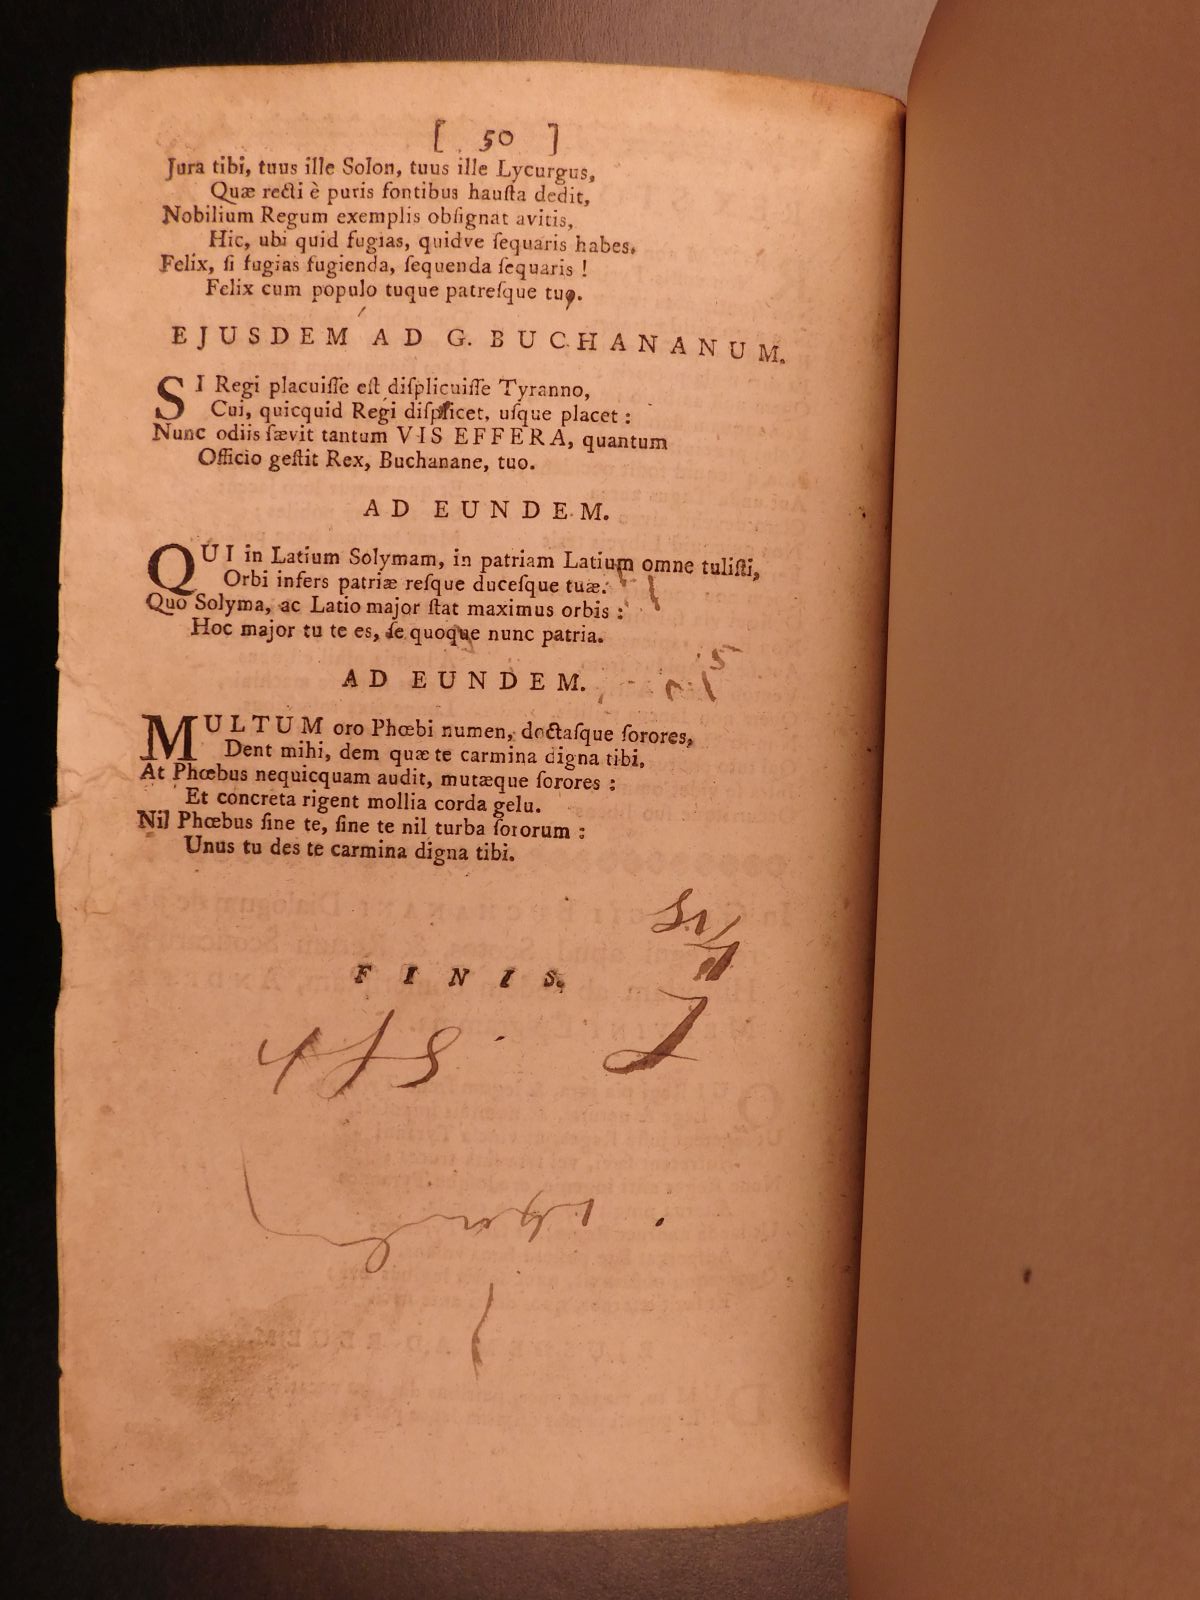 [ 50 ]
Jura tibi, tuus ille Solon, tuus ille Lycurgus,
Quæ recti è puris fontibus hauſta dedit,
Nobilium Regum exemplis obſignat avitis,
Hic, ubi quid fugias, quidve ſequaris habes.
Felix, ſi fugias fugienda, ſequenda ſequaris !
Felix cum populo tuque patreſque tuo.
EJUSDEM AD G. BUCHANANUM.
SI Regi placuiſſe eſt diſplicuiſſe Tyranno,
Cui, quicquid Regi diſplicet, uſque placet :
Nunc odiis ſævit tantum VIS EFFERA, quantum
Officio geſtit Rex, Buchanane, tuo.
AD EUNDEM.
QUI in Latium Solymam, in patriam Latium omne tuliſti,
Orbi infers patriæ reſque duceſque tuæ.
Quo Solyma, ac Latio major ſtat maximus orbis :
Hoc major tu te es, ſe quoque nunc patria.
AD EUNDEM.
MULTUM oro Phœbi numen, doctaſque ſorores,
Dent mihi, dem quæ te carmina digna tibi,
At Phœbus nequicquam audit, mutæque ſorores :
Et concreta rigent mollia corda gelu.
Nil Phœbus ſine te, ſine te nil turba ſororum :
Unus tu des te carmina digna tibi.
FINIS.